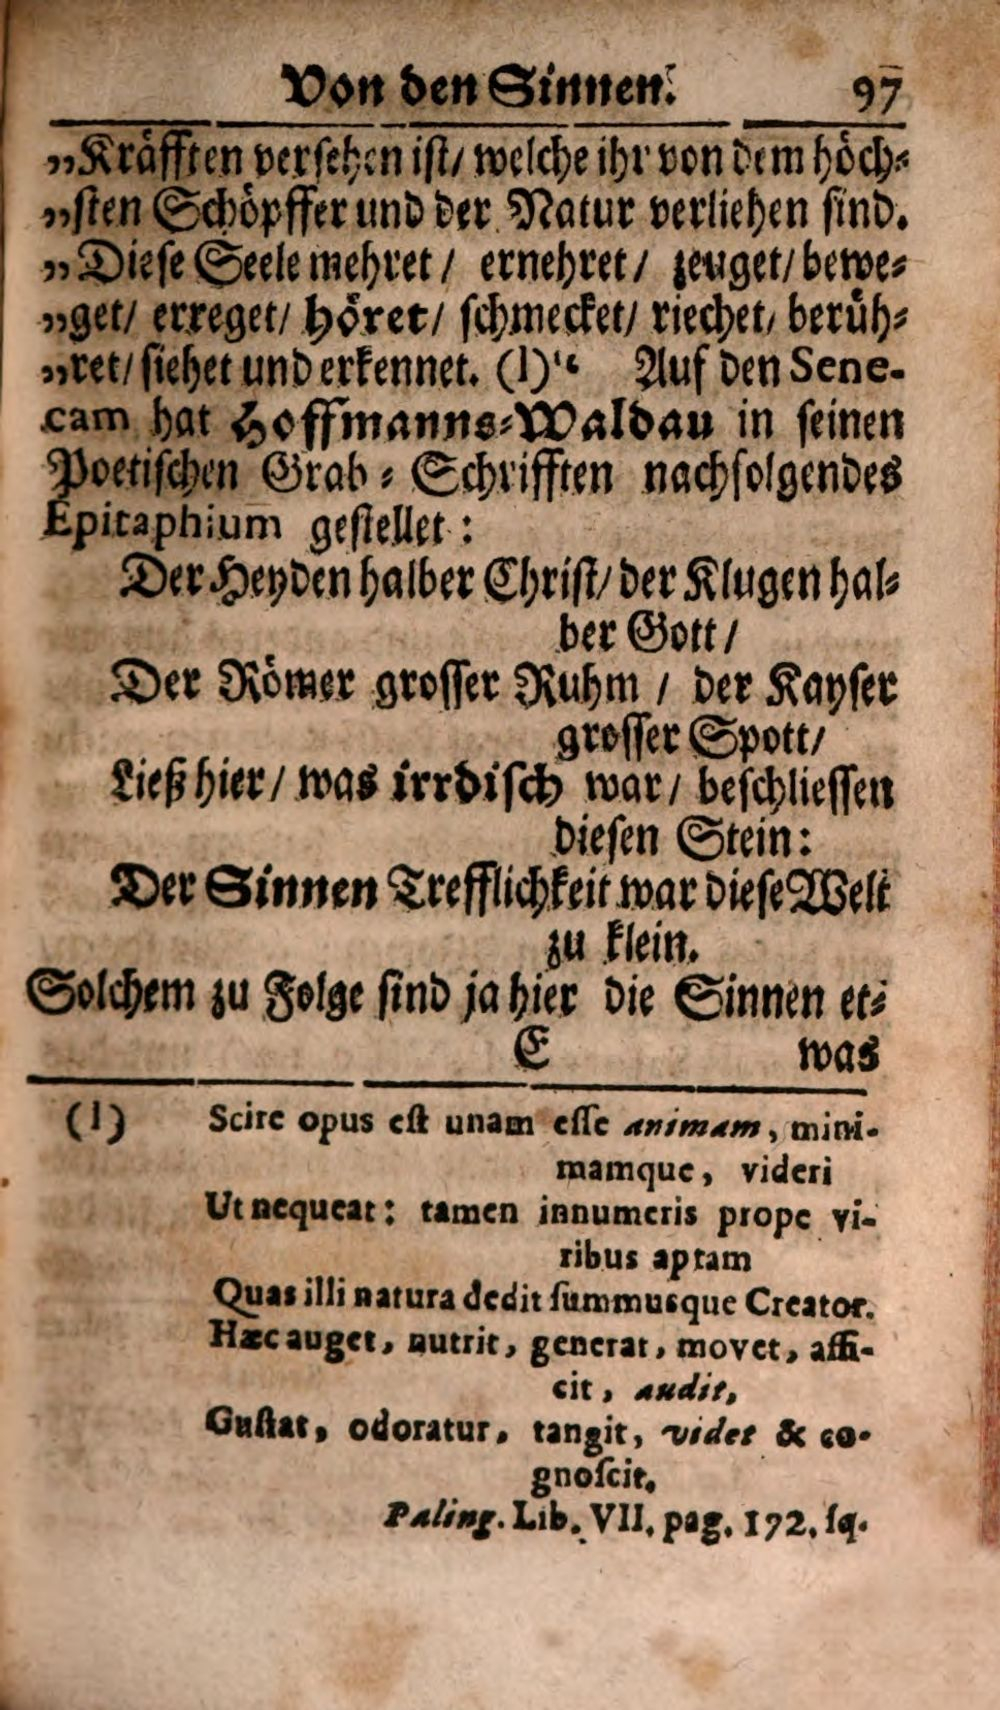 Von den Sinnen. 97
„Kräfften versehen ist/ welche ihr von dem höch-
„sten Schöpffer und der Natur verliehen sind.
„Diese Seele mehret / ernehret / zeuget/ bewe-
„get/ erreget/ höret/ schmecket/ riechet/ berüh-
„ret/ siehet und erkennet. (l)“ Auf den Sene-
cam hat Hoffmanns-Waldau in seinen
Poetischen Grab-Schrifften nachfolgendes
Epitaphium gestellet:
Der Heyden halber Christ/ der Klugen hal-
ber Gott /
Der Römer grosser Ruhm / der Kayser
grosser Spott /
Ließ hier / was irrdisch war / beschliessen
diesen Stein:
Der Sinnen Trefflichkeit war diese Welt
zu klein.
Solchem zu Folge sind ja hier die Sinnen et-
E was
(l) Scire opus est unam esse animam, mini-
mamque, videri
Ut nequeat: tamen innumeris prope vi-
ribus aptam
Quas illi natura dedit summusque Creator.
Hæc auget, nutrit, generat, movet, affi-
cit, audit,
Gustat, odoratur, tangit, videt & co-
gnoscit.
Paling. Lib. VII. pag. 172. sq.